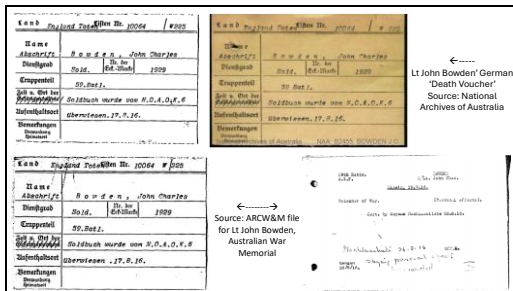 Land England Toten Listen Nr. 10064 W 925
Name
Abschrift Bowden, John Charles
Dienstgrad Sold. Nr. der Erk.-Marke 1929
Truppenteil 59.Batl.
Zeit u. Ort der
Soldbuch wurde von N.O.A.O.K.6
Aufenthaltsort überwiesen.17.8.16.
Bemerkungen
Verwundung
Heimatsort
Land England Toten Listen Nr. 10064 W 925
Name
Abschrift Bowden, John Charles
Dienstgrad Sold. Nr. der Erk.-Marke 1929
Truppenteil 59 Batl.
Zeit u. Ort der
Soldbuch wurde von N.O.A.O.K.6
Aufenthaltsort überwiesen.17.8.16.
Bemerkungen
Verwundung
Heimatsort
Archives of Australia NAA: B2455, BOWDEN J C
←-----
Lt John Bowden' German
'Death Voucher'
Source: National
Archives of Australia
Land England Toten Listen Nr. 10064 W 925
Name
Abschrift Bowden, John Charles
Dienstgrad Sold. Nr. der Erk.-Marke 1929
Truppenteil 59.Batl.
Zeit u. Ort der
Soldbuch wurde von N.O.A.O.K.6
Aufenthaltsort überwiesen .17.8.16.
Bemerkungen
Verwundung
Heimatsort
←-------→
Source: ARCW&M file
for Lt John Bowden,
Australian War
Memorial